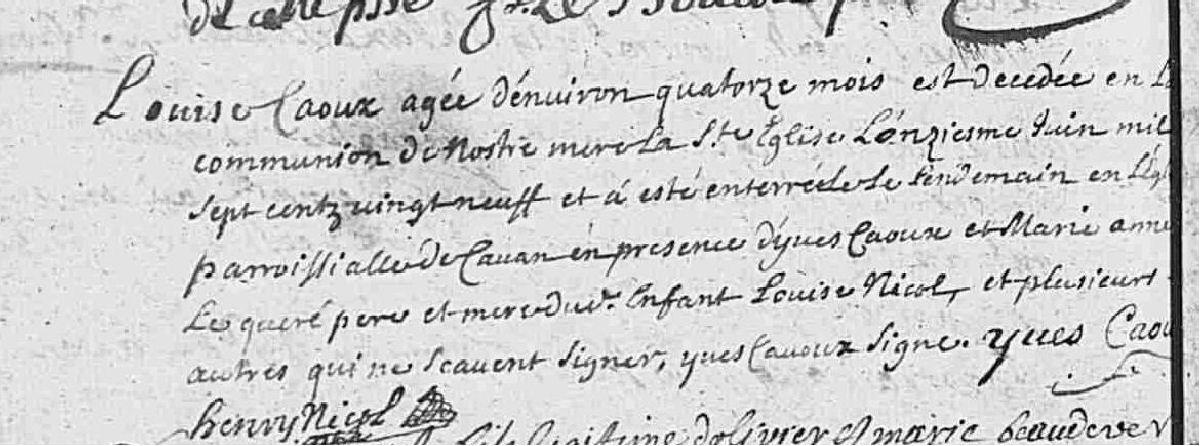 de cette psse
Louise Caoux agée dénuiron quatorze mois est decedée en La
communion de Nostre mere La Ste Eglise Lónziesme Juin mil
sept centz vingt neuff et á esté enterrée le Lendemain en L'Egl
parroissialle de Cauan en presence d'yues Caoux et Marie anne
Le queré pere et mere du dt. Enfant Louise Nicol, et plusieurs
autres qui ne scauent signer, yues Cauoux signe. yues Caou
henry Nicol
fils Legitime d'olivier et marie